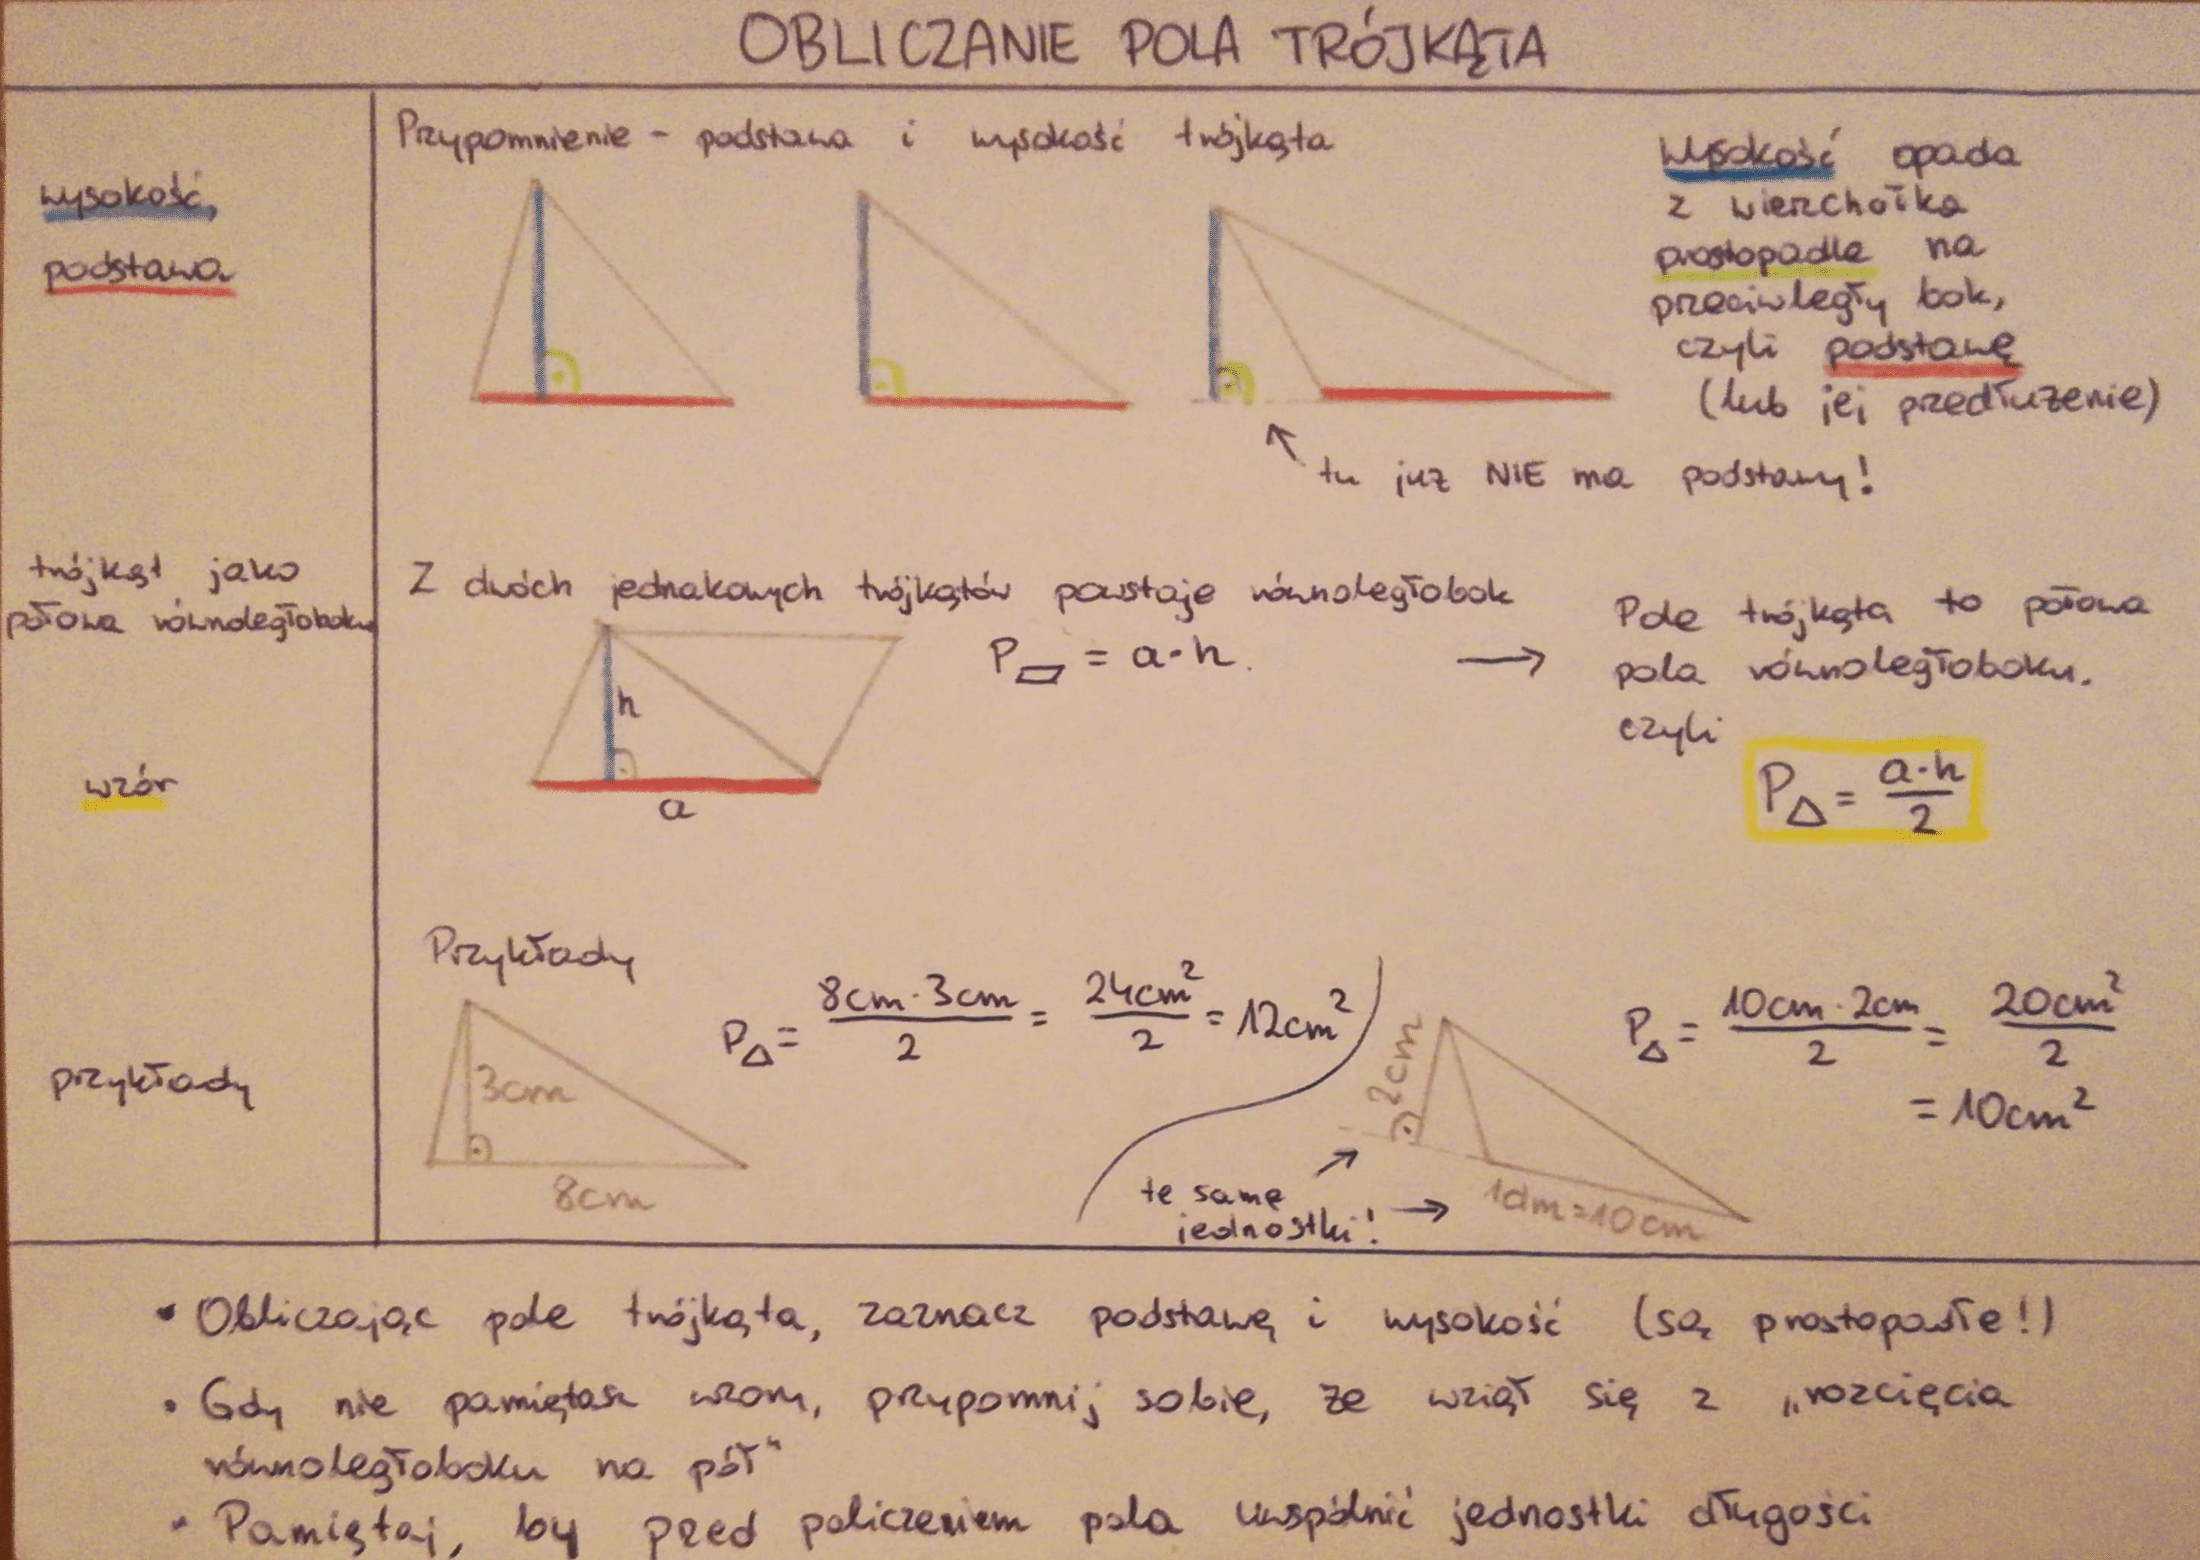 OBLICZANIE POLA TRÓJKĄTA
wysokość,
podstawa
Przypomnienie - podstawa i wysokość trójkąta
Wysokość opada
z wierzchołka
prostopadle na
przeciwległy bok,
czyli podstawę
(lub jej przedłużenie)
tu już NIE ma podstawy!
trójkąt jako
połowa równoległoboku
Z dwóch jednakowych trójkątów powstaje równoległobok
P▱ = a·h.
→
h
a
Pole trójkąta to połowa
pola równoległoboku.
czyli
P△ = a·h/2
wzór
przykłady
Przykłady
3cm
8cm
P△ = 8cm·3cm/2 = 24cm²/2 = 12cm²
2cm
1dm=10cm
te same
jednostki!
P△ = 10cm·2cm/2 = 20cm²/2
= 10cm²
• Obliczając pole trójkąta, zaznacz podstawę i wysokość (są prostopadłe!)
• Gdy nie pamiętasz wzoru, przypomnij sobie, że wziął się z „rozcięcia
równoległoboku na pół"
• Pamiętaj, by przed policzeniem pola uwspólnić jednostki długości